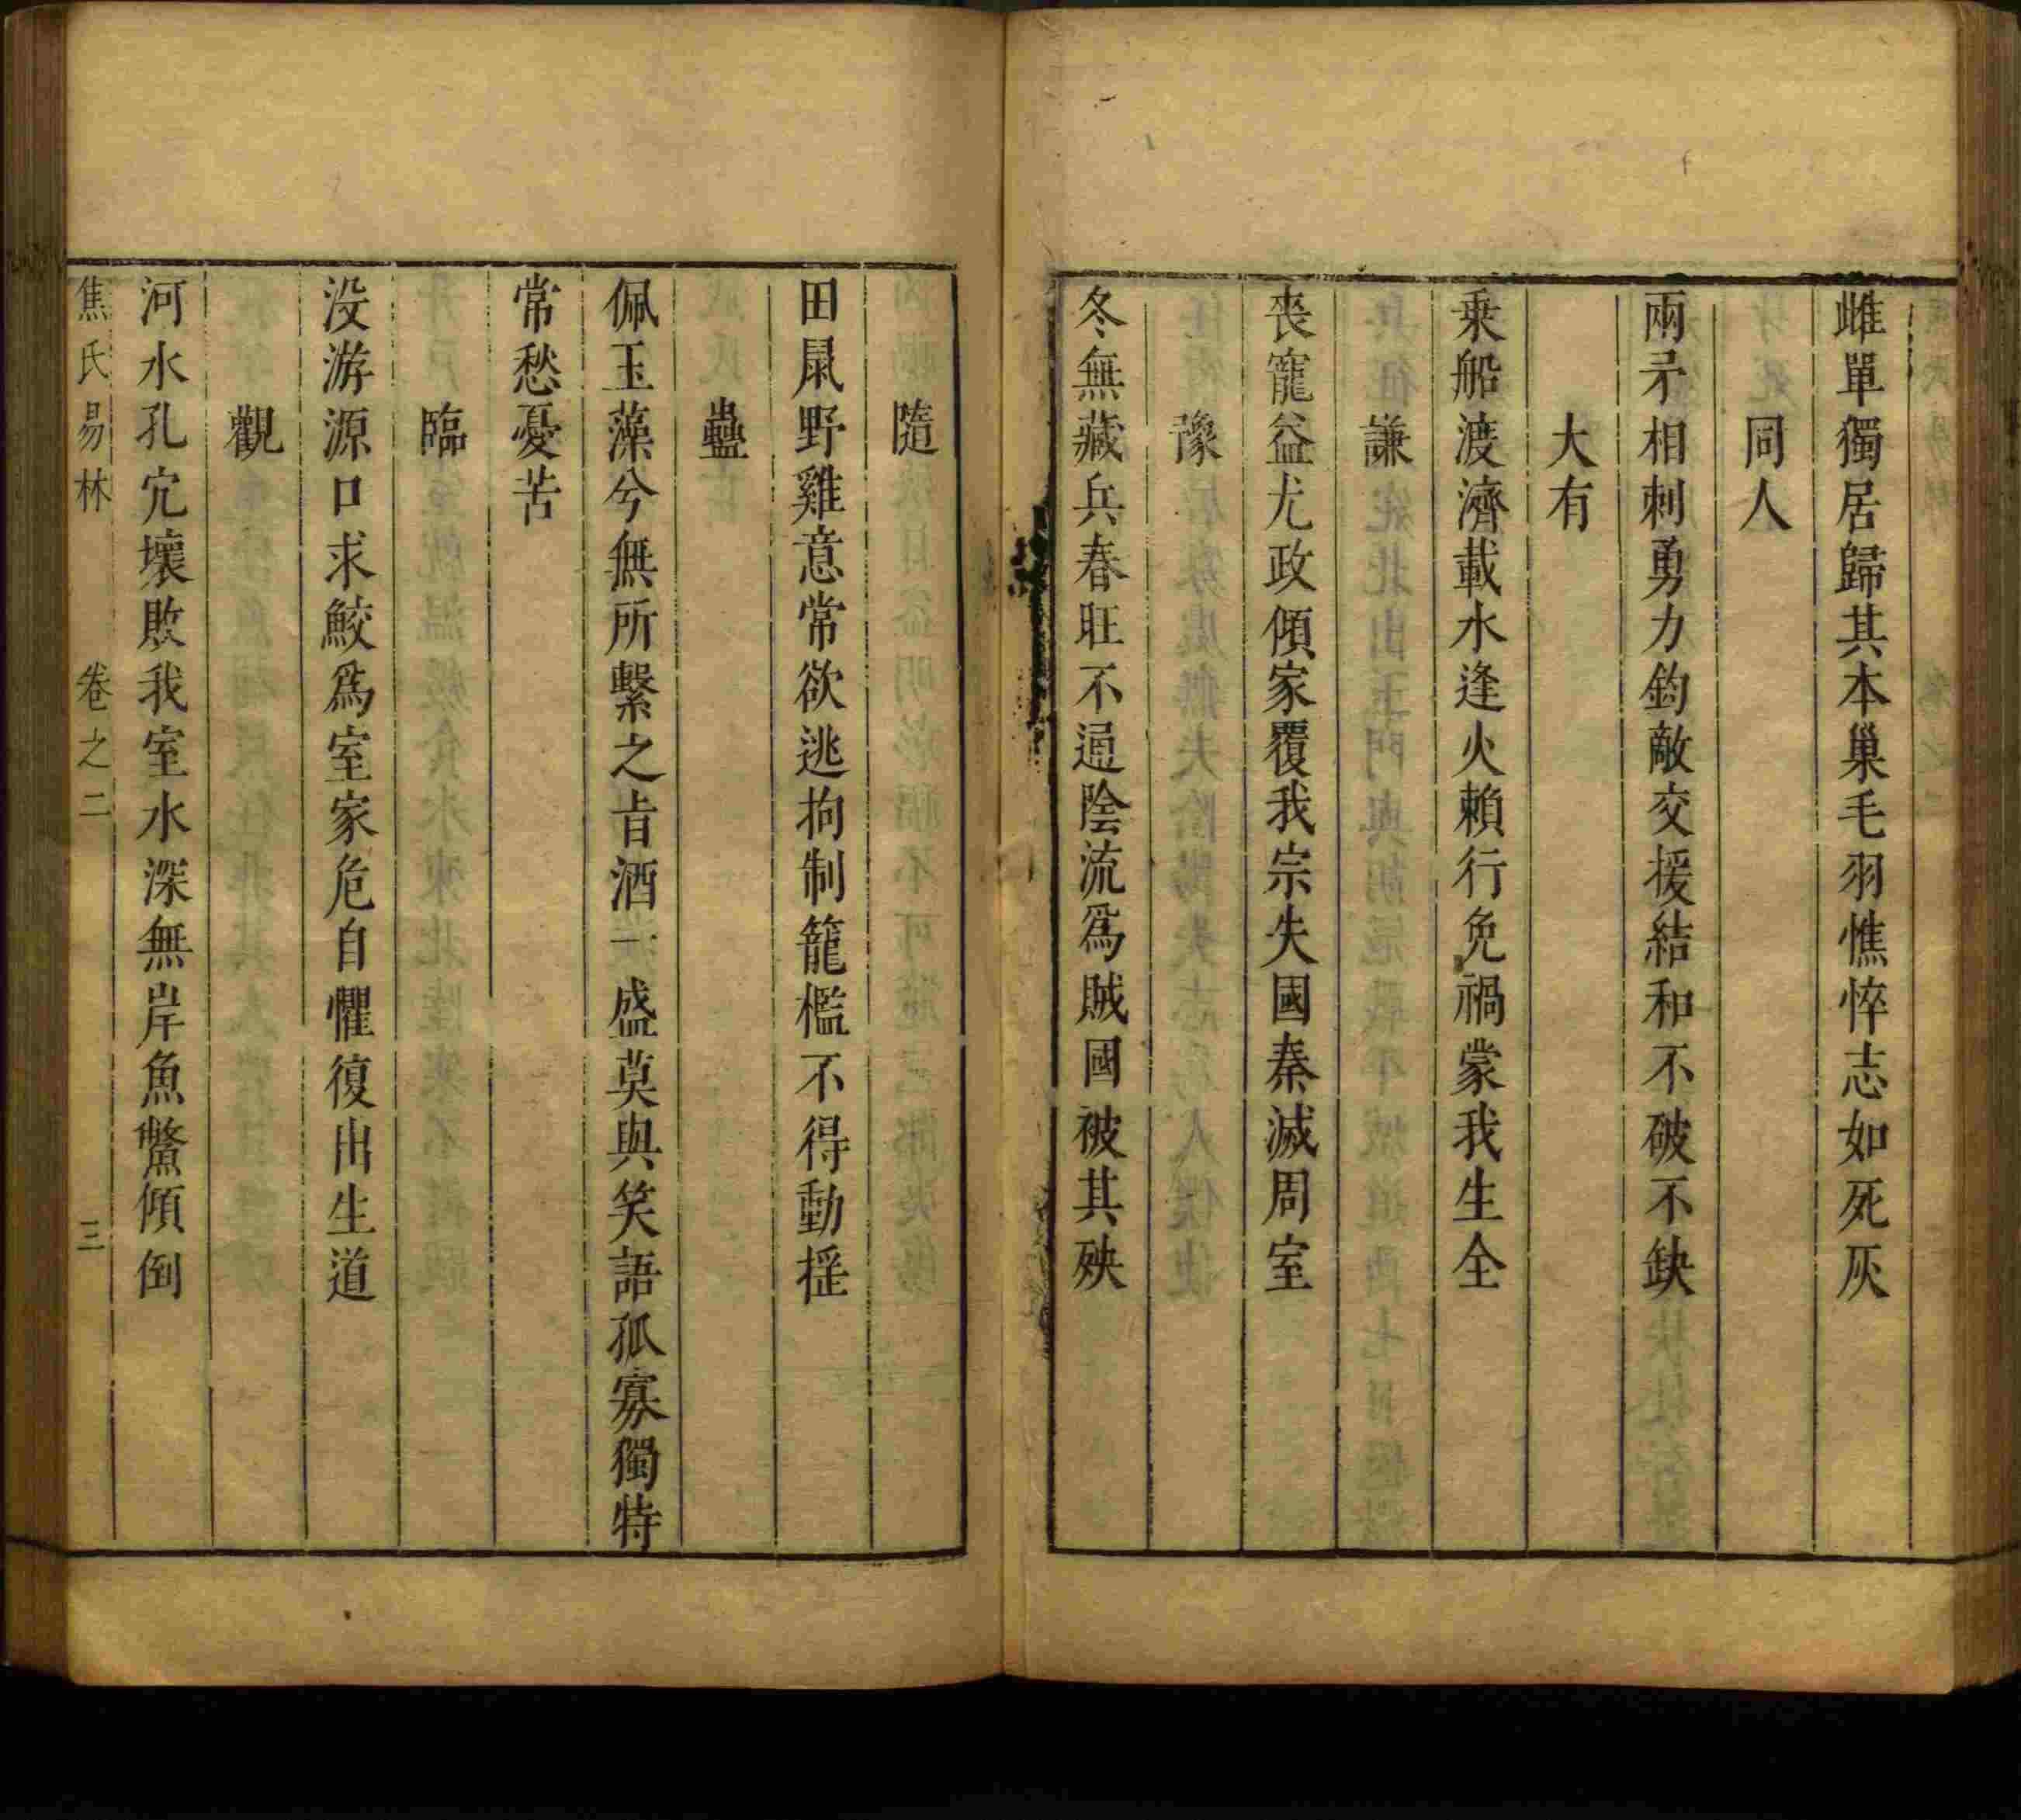 雌單獨居歸其本巢毛羽憔悴志如死灰
同人
兩矛相刺勇力鈞敵交援結和不破不缺
大有
乗船渡濟載水逢火賴行免禍蒙我生全
謙
喪寵益尤政傾家覆我宗失國秦滅周室
豫
冬無藏兵春旺不通陰流爲賊國被其殃
隨
田鼠野雞意常欲逃拘制籠檻不得動摇
蠱
佩玉蘂兮無所繫之㫖酒一盛莫與笑語孤寡獨特
常愁憂苦
臨
没游源口求鮫爲室家危自懼復出生道
觀
河水孔穴壞敗我室水深無岸魚鱉傾倒
焦氏易林 卷之二 三